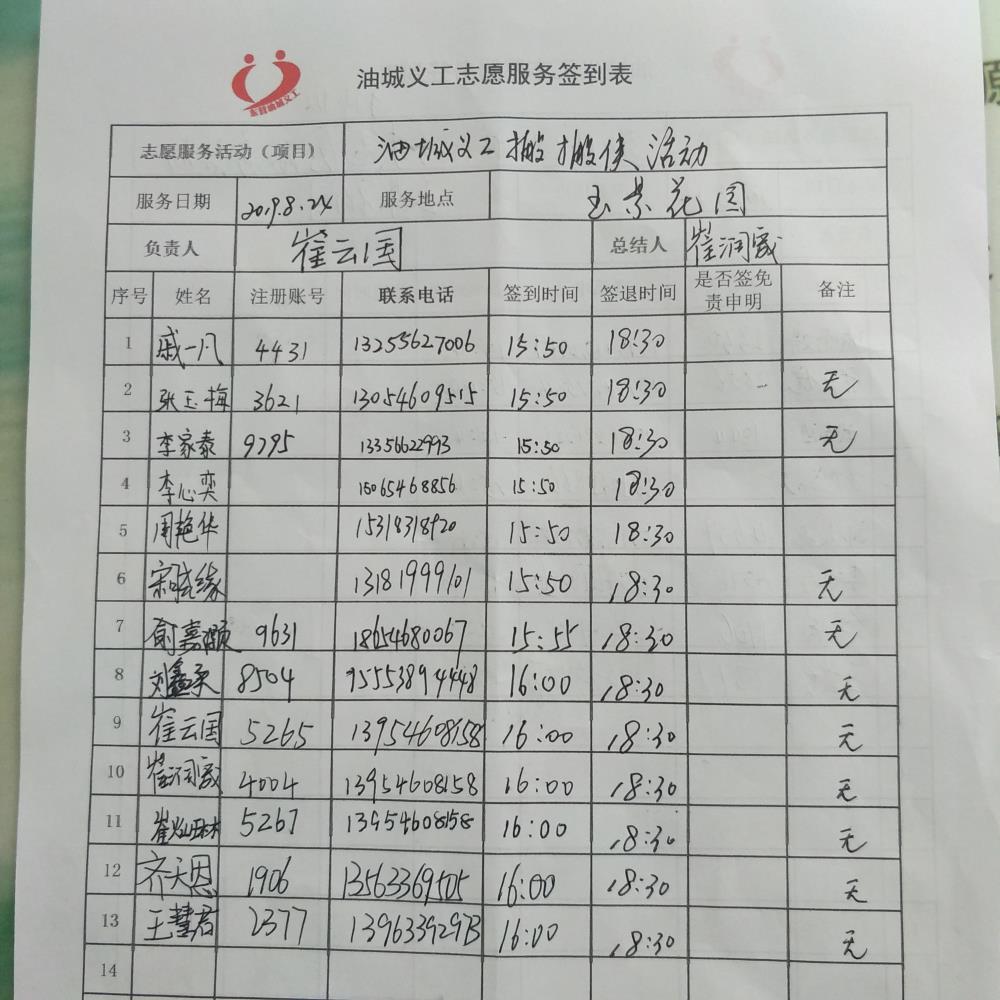 油城义工志愿服务签到表
志愿服务活动（项目） 油城义工搬搬侠活动
服务日期 2019.8.24 服务地点 玉景花园
负责人 崔云国 总结人 崔润宬
序号 姓名 注册账号 联系电话 签到时间 签退时间 是否签免责申明 备注
1 戚一凡 4431 13255627006 15:50 18:30
2 张玉梅 3621 13054609515 15:50 18:30 无
3 李家泰 9795 13356622993 15:50 18:30 无
4 李心奕 15065468856 15:50 18:30
5 周艳华 15318318920 15:50 18:30
6 13181999101 15:50 18:30 无
7 俞嘉颐 9631 18654680067 15:55 18:30 无
8 刘鑫承 8504 95553894448 16:00 18:30 无
9 崔云国 5265 13954608158 16:00 18:30 无
10 崔润宬 4004 13954608158 16:00 18:30 无
11 5267 13954608158 16:00 18:30 无
12 齐天恩 1906 13563369505 16:00 18:30 无
13 王慧君 2377 13963392973 16:00 18:30 无
14